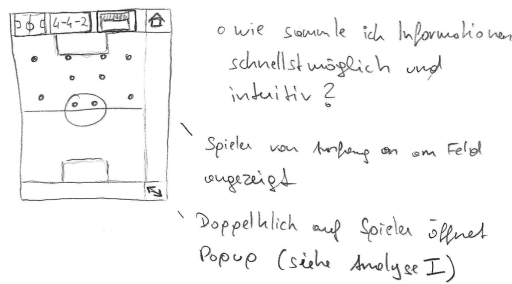 4-4-2
o wie sammle ich Informationen
schnellstmöglich und
intuitiv?
\ Spieler von Anfang an am Feld
angezeigt
\ Doppelklick auf Spieler öffnet
Popup (siehe Analyse I)